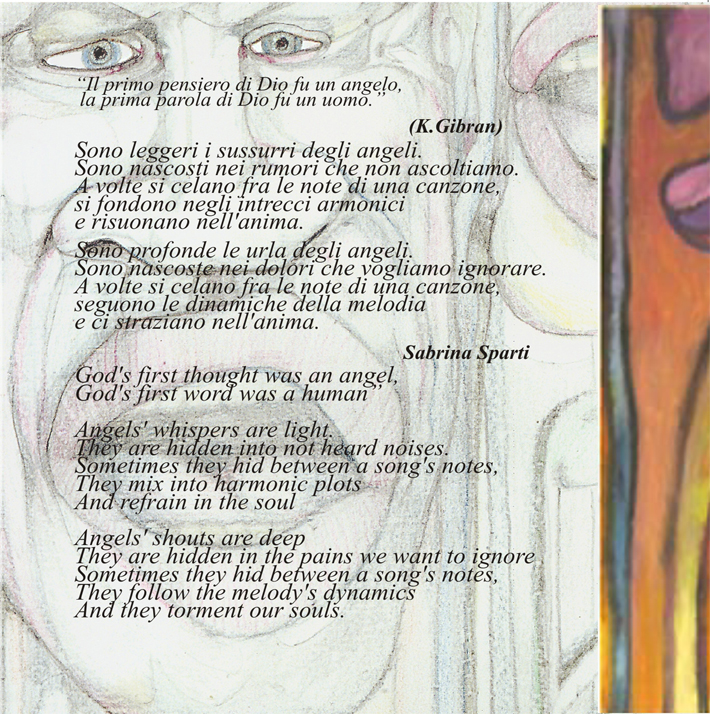 “Il primo pensiero di Dio fu un angelo,
la prima parola di Dio fu un uomo.”
(K.Gibran)
Sono leggeri i sussurri degli angeli.
Sono nascosti nei rumori che non ascoltiamo.
A volte si celano fra le note di una canzone,
si fondono negli intrecci armonici
e risuonano nell'anima.
Sono profonde le urla degli angeli.
Sono nascoste nei dolori che vogliamo ignorare.
A volte si celano fra le note di una canzone,
seguono le dinamiche della melodia
e ci straziano nell'anima.
Sabrina Sparti
God's first thought was an angel,
God's first word was a human”
Angels' whispers are light.
They are hidden into not heard noises.
Sometimes they hid between a song's notes,
They mix into harmonic plots
And refrain in the soul
Angels' shouts are deep
They are hidden in the pains we want to ignore
Sometimes they hid between a song's notes,
They follow the melody's dynamics
And they torment our souls.